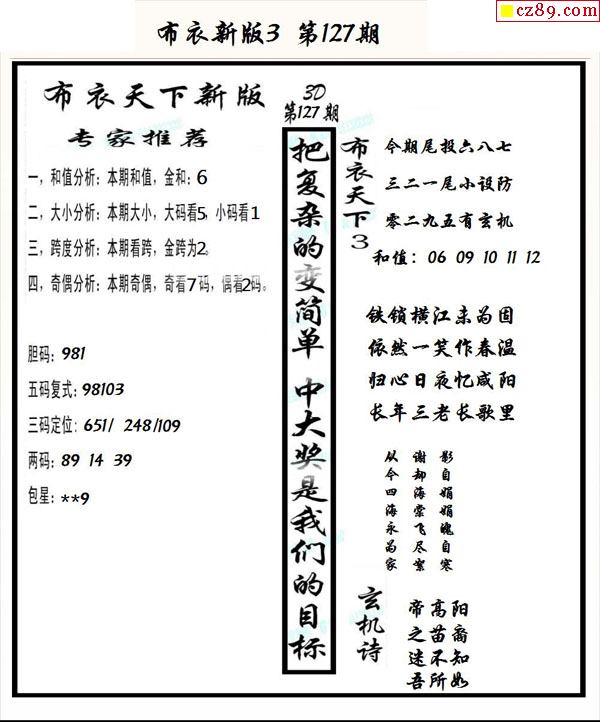 cz89.com
布衣新版3 第127期
布衣天下新版
专家推荐
一，和值分析：本期和值，金和：6
二，大小分析：本期大小，大码看5，小码看1
三，跨度分析：本期看跨，金跨为2。
四，奇偶分析：本期奇偶，奇看7码，偶看2码。
胆码：981
五码复式：98103
三码定位：651/ 248/109
两码：89 14 39
包星：**9
3D
第127期
把复杂的变简单 中大奖是我们的目标
布衣天下3
今期尾投六八七
三二一尾小设防
零二九五有玄机
和值：06 09 10 11 12
铁锁横江未为固
依然一笑作春温
归心日夜忆咸阳
长年三老长歌里
从今四海永为家
谢却海棠飞尽絮
影自娟娟魄自寒
玄机诗
帝高阳
之苗裔
迷不知
吾所如